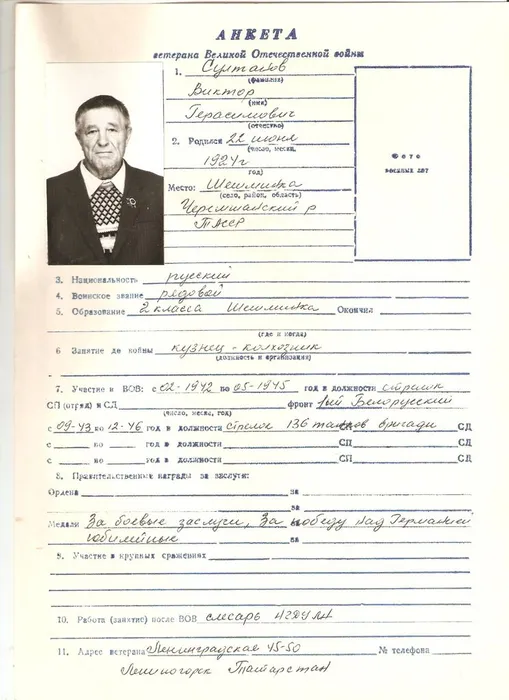 АНКЕТА
ветерана Великой Отечественной войны
1. Султанов
(фамилия)
Виктор
(имя)
Герасимович
(отчество)
2. Родился 22 июня
(число, месяц,
1924г
год)
Место: Шешминка
(село, район, область)
Черемшанский р
ТАССР
Фото
военных лет
3. Национальность русский
4. Воинское звание рядовой
5. Образование 2 класса Шешминка Окончил
(где и когда)
6 Занятие до войны кузнец - колхозник
(должность и организация)
7. Участие в ВОВ: с 02-1942 по 05-1945 год в должности стрелок
СП (отряд) и СД фронт 1ый Белорусский
(число, месяц, год)
с 09-43 по 12-46 год в должности стрелок 136 бригады СД
с по год в должности СП СД
с по год в должности СП СД
8. Правительственные награды за заслуги:
Ордена за
за
Медали За боевые заслуги, За победу над Германией
юбилейные за
9. Участие в крупных сражениях
10. Работа (занятие) после ВОВ слесарь
11. Адрес ветерана Ленинградская 45-50 № телефона
Лениногорск Татарстан